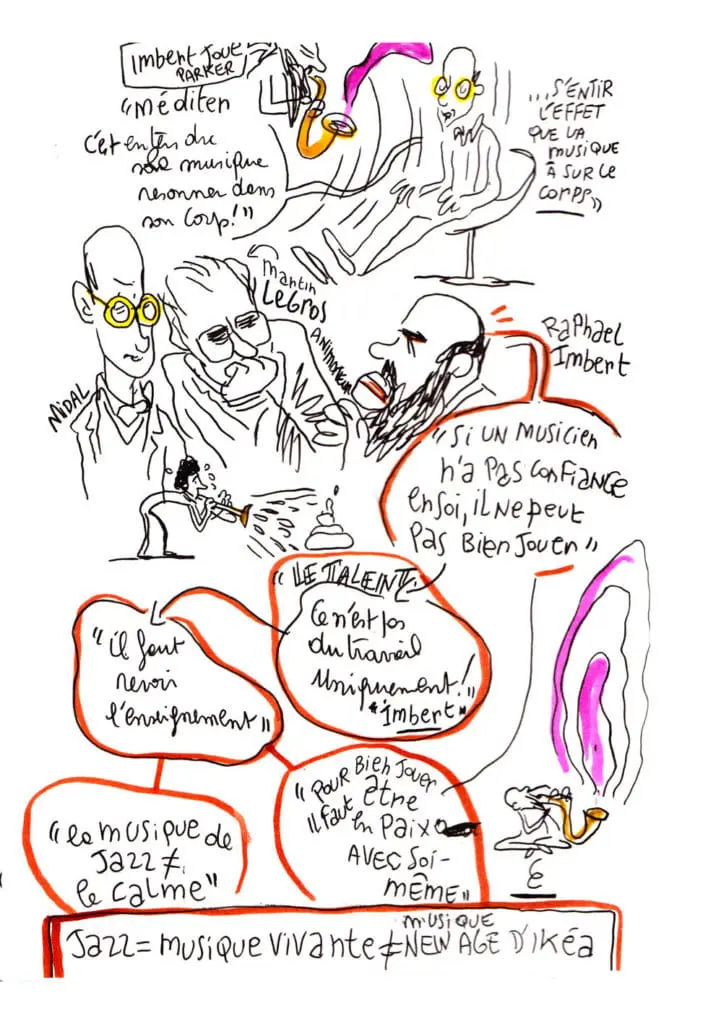 Imbert Joue
PARKER
"Méditer
C'est entendre
la musique
resonner dans
son corps!"
...S'ENTIR
L'EFFET
QUE LA
musique
À SUR LE
CORPS"
Martin
LeGros
ANIMATEUR
NIDAL
Raphael
Imbert
"Si UN MUSICIEN
n'a PAS CONFIANCE
en Soi, il Ne peut
PAS BIEN JOUER"
"LE TALENT.
Ce n'est pas
du travail
Uniquement!
"Imbert"
"il faut
revoir
l'enseignement"
"POUR BIEN JOUER
IL FAUT être
en PAIX
AVEC SOI-
MÊME"
"la musique de
JAZZ ≠
le calme"
JAZZ = musique vivante ≠ musique NEW AGE D'IKÉA